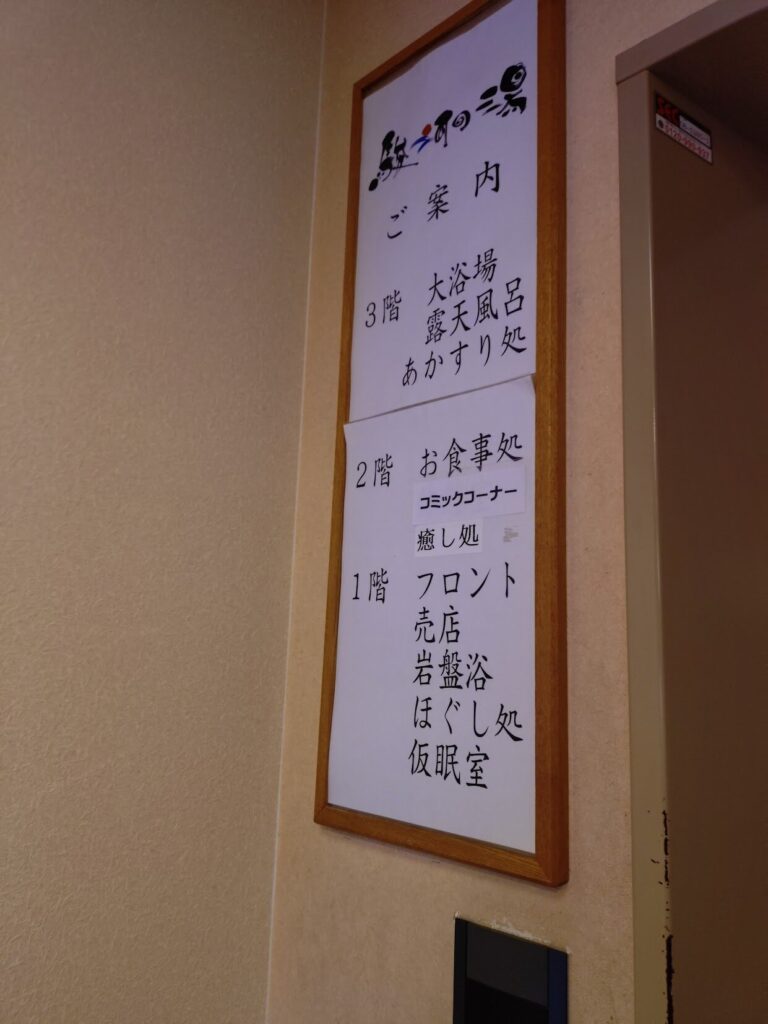 駿河の湯
ご案内
3階 大浴場
露天風呂
あかすり処
2階 お食事処
コミックコーナー
癒し処
1階 フロント
売店
岩盤浴
ほぐし処
仮眠室